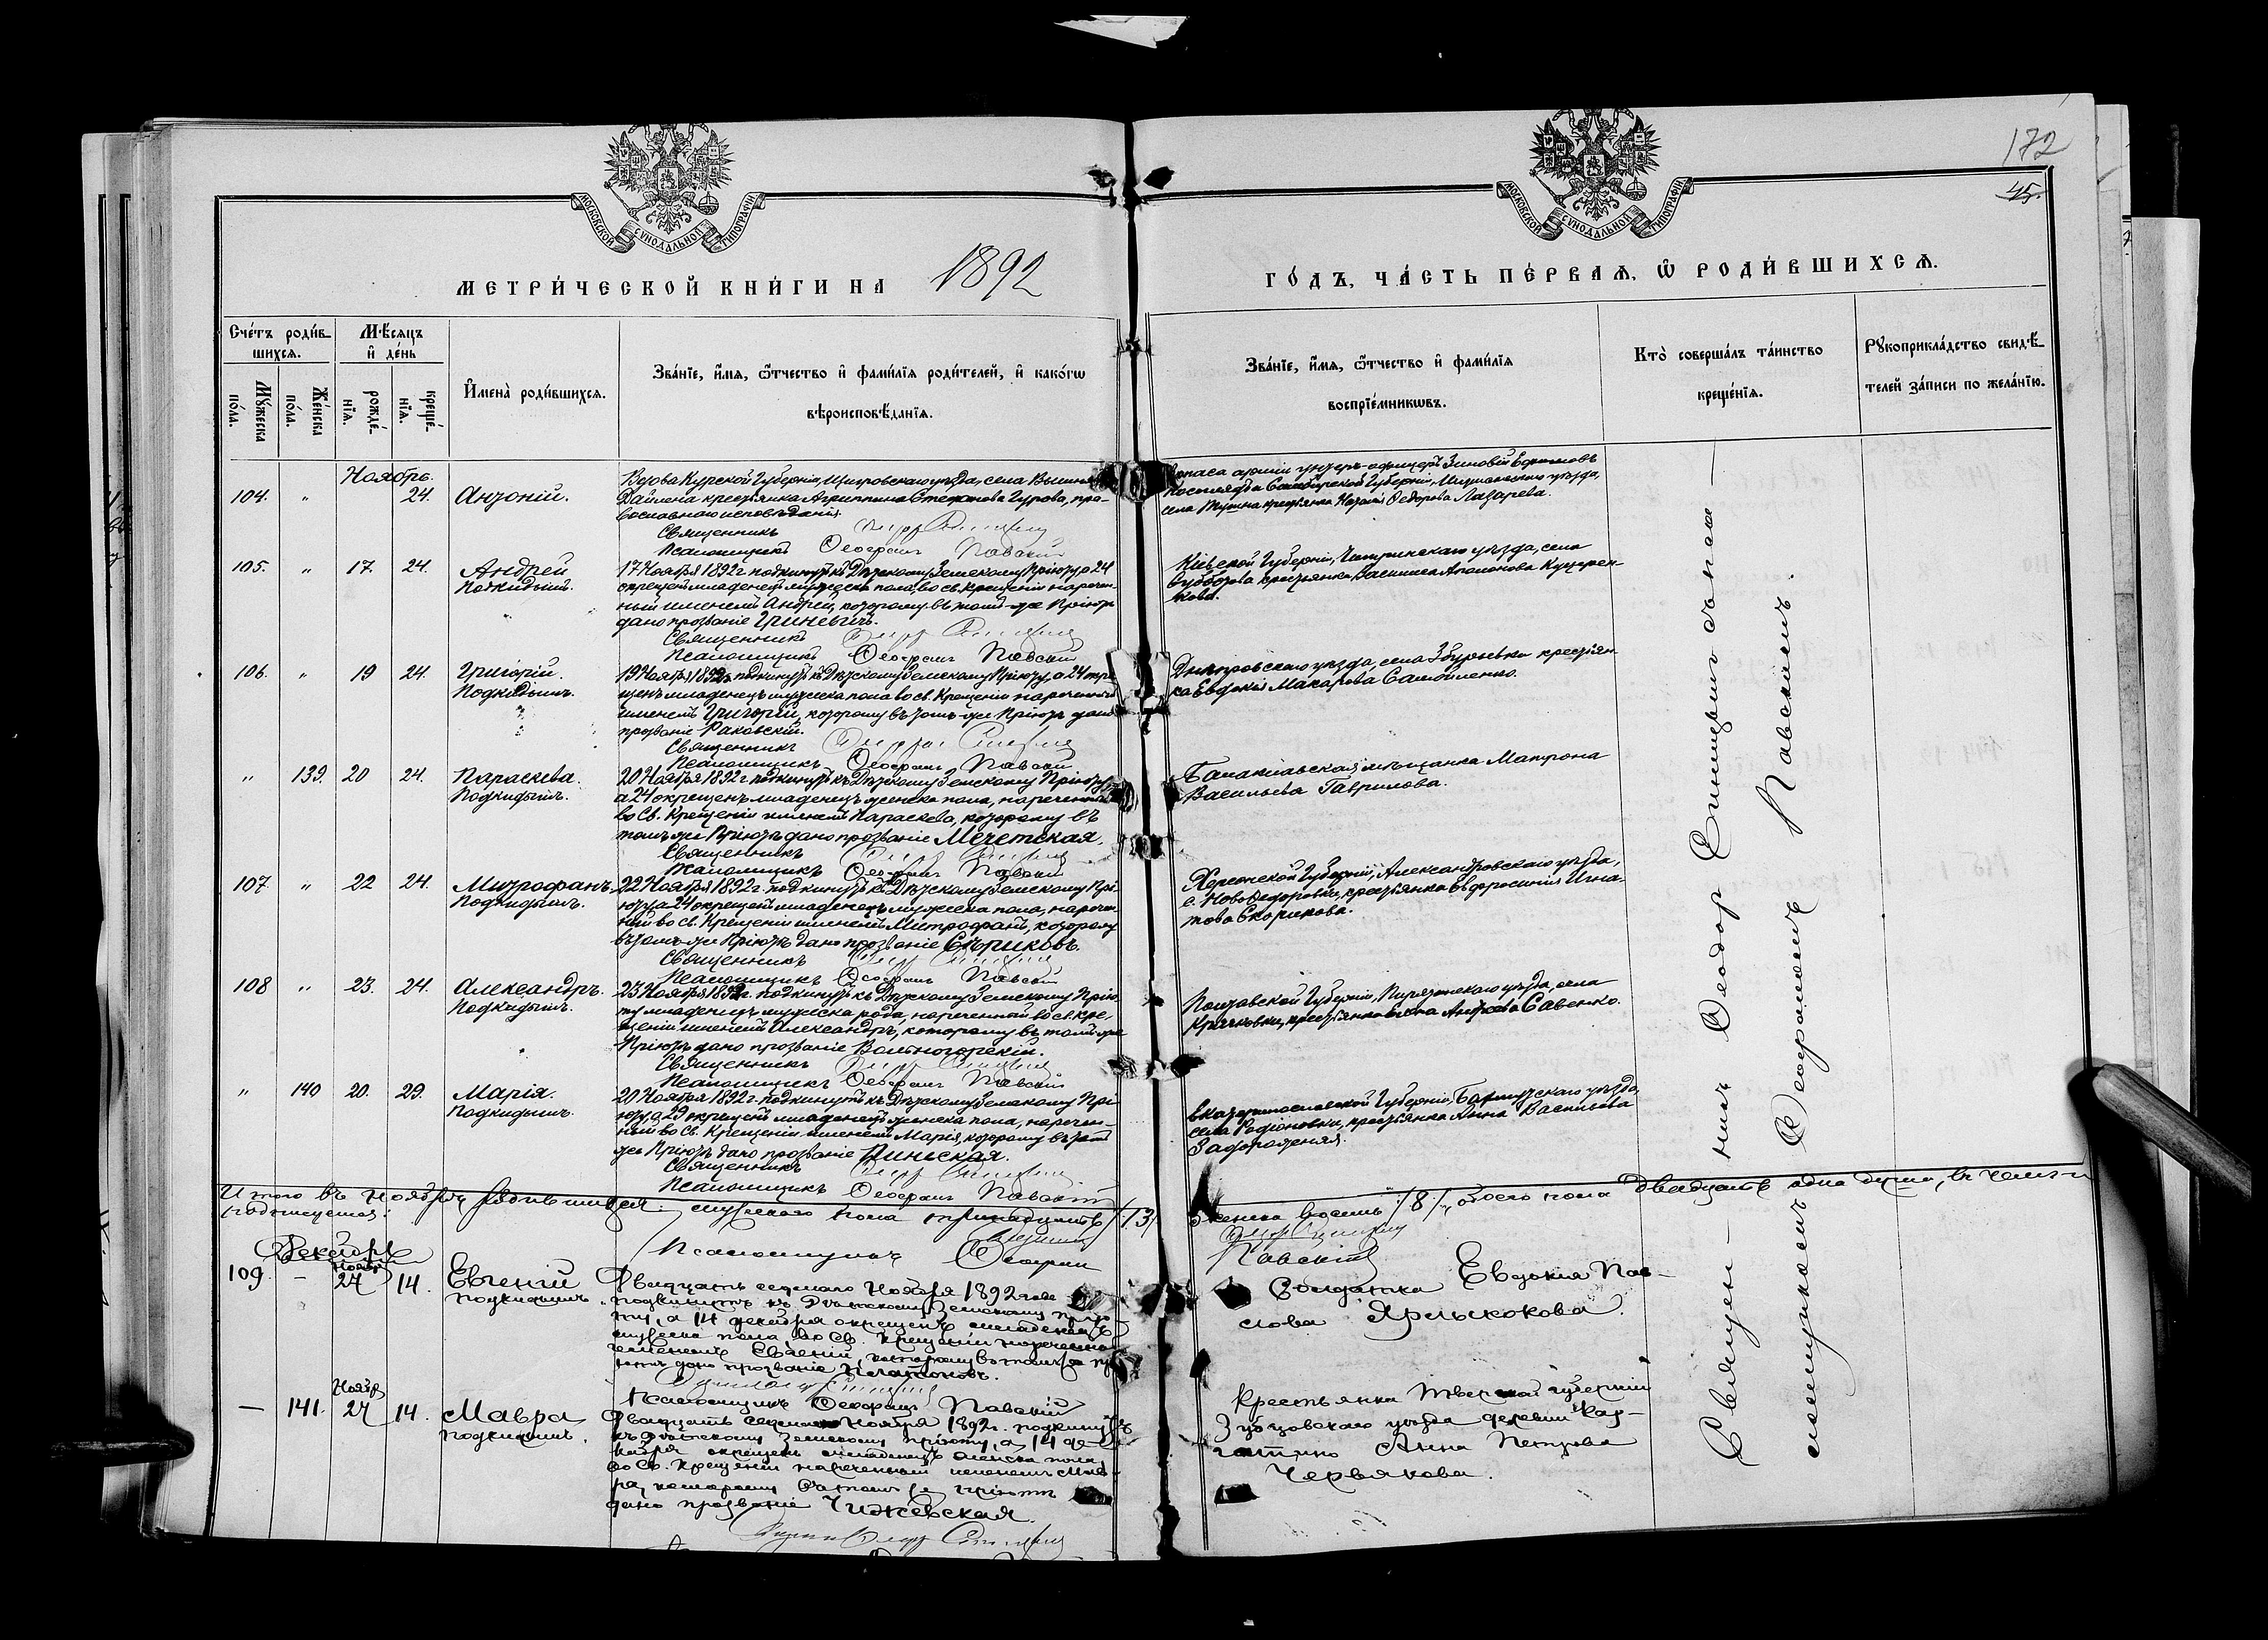 172
45.
МОСКОВСКОЙ СѴНОДАЛЬНОЙ ТИПОГРАФІИ
МОСКОВСКОЙ СѴНОДАЛЬНОЙ ТИПОГРАФІИ
МЕТРИ́ЧЕСКОЙ КНИ́ГИ НА 1892
ГО́ДЪ, ЧА́СТЬ ПЕ́РВАЯ, Ѡ РОДИ́ВШИХСЯ.
Сче́тъ роди́в-
шихся.
Мѣ́сяцъ
и҆ де́нь
Мꙋ́жеска
по́ла.
Же́нска
по́ла.
рожде́-
нїя.
креще́-
нїя.
И҆мена̀ роди́вшихся.
Зва́нїе, и҆́мя, ѻ҆́тчество и҆ фами́лїя роди́телей, и҆ како́гѡ
вѣроисповѣ́данїя.
Зва́нїе, и҆́мя, ѻ҆́тчество и҆ фами́лїя
воспрїе́мникѡвъ.
Кто̀ соверша́лъ та́инство
креще́нїя.
Рꙋкоприкла́дство свидѣ́-
телей за́писи по жела́нїю.
Ноябрь.
104. " 24. Антоній.
Вдова Курской Губерніи, Щигровскаго уѣзда, села
крестьянка Агриппина Стефанова Гурова, пра-
вославнаго исповѣданія.
Священникъ
Псаломщикъ Ѳеофанъ Павскій
запаса арміи унтеръ-офицеръ Зиновій
Симбирской Губерніи, уѣзда,
села крестьянка Ѳедорова Лазарева.
105. " 17. 24. Андрей
Подкидышъ.
17 Ноября 1892 г. подкинутъ къ Дѣтскому Земскому Пріюту, а 24
окрещенъ младенецъ мужеска пола, во св. крещеніи наречен-
ный именемъ Андрей, которому въ томъ-же Пріютѣ
дано прозваніе Гриневичъ.
Священникъ
Псаломщикъ Ѳеофанъ Павскій
Кіевской Губерніи, Чигринскаго уѣзда, села
Субботова крестьянка Василиса
кова.
106. " 19 24. Григорій.
Подкидышъ.
19 Ноября 1892 г. подкинутъ къ Дѣтскому Земскому Пріюту, а 24 окре-
щенъ младенецъ мужеска пола во св. Крещеніи нареченный
именемъ Григорій, которому въ томъ-же Пріютѣ дано
прозваніе Раковскій.
Священникъ
Псаломщикъ Ѳеофанъ Павскій
Днѣпровскаго уѣзда, села Збурьевки крестьян-
ка Евдокія Макарова Самойленко.
" 139. 20 24. Параскева.
Подкидышъ.
20 Ноября 1892 г. подкинутъ къ Дѣтскому Земскому Пріюту,
а 24 окрещенъ младенецъ женска пола, нареченный
во Св. Крещеніи именемъ Параскева, которому въ
томъ-же Пріютѣ дано прозваніе Мечетская.
Священникъ
Псаломщикъ Ѳеофанъ Павскій
мѣщанка Матрона
Васильева Гаврилова.
107. " 22 24. Митрофанъ.
Подкидышъ.
22 Ноября 1892 г. подкинутъ къ Дѣтскому Земскому Прі-
юту, а 24 окрещенъ младенецъ мужеска пола, наречен-
ный во св. Крещеніи именемъ Митрофанъ, которому
въ томъ-же Пріютѣ дано прозваніе Скориковъ.
Священникъ
Псаломщикъ Ѳеофанъ Павскій
Херсонской Губерніи, Александровскаго уѣзда,
с. Новоѳедоровки, крестьянка Евфросинія Игна-
това Скорикова.
108 " 23. 24. Александръ.
Подкидышъ.
23 Ноября 1892 г. подкинутъ къ Дѣтскому Земскому Прію-
ту младенецъ мужеска рода, нареченный во св. кре-
щеніи именемъ Александръ, которому въ томъ-же
Пріютѣ дано прозваніе Вольногорскій.
Священникъ
Псаломщикъ Ѳеофанъ Павскій
Полтавской Губерніи, Пирятинскаго уѣзда, села
Крячковки, крестьянка Савенко.
" 140 20. 29. Марія.
Подкидышъ.
20 Ноября 1892 г. подкинутъ къ Дѣтскому Земскому Прі-
юту, а 29 окрещенъ младенецъ женска пола, наречен-
ный во Св. Крещеніи именемъ Марія, которому въ томъ
же Пріютѣ дано прозваніе Пинская.
Священникъ
Псаломщикъ Ѳеофанъ Павскій
Екатеринославской Губерніи, Бахмутскаго уѣзда,
села Родіоновки, крестьянка Анна Васильева
Задорожная.
Итого въ Ноябрѣ родившихся: мужескаго пола тринадцать /13/
женска восемь /8/, обоего пола двадцать одна душа, въ чемъ и
подписуемся:
Псаломщикъ Ѳеофанъ
Павскій
Декабрь
109. — Ноября 27 14. Евгеній
подкидышъ.
Двадцать седьмого Ноября 1892 года
подкинутъ къ Дѣтскому Земскому прію-
ту, а 14 декабря окрещенъ младенецъ
мужеска пола, во Св. Крещеніи нареченный
именемъ Евгеній, которому въ томъ же прі-
ютѣ дано прозваніе Платоновъ.
Псаломщикъ Ѳеофанъ Павскій
Солдатка Евдокія Пав-
лова Ярлыкокова.
— 141. Ноября 27 14. Мавра
подкидышъ.
Двадцать седьмого Ноября 1892 г. подкинутъ
къ Дѣтскому Земскому пріюту, а 14 де-
кабря окрещенъ младенецъ женска пола,
во Св. Крещеніи нареченный именемъ Мав-
ра, которому въ томъ же пріютѣ
дано прозваніе Чижевская.
Крестьянка Тверской губерніи
Зубцовскаго уѣзда деревни
Анна Петрова
Червякова.
Священ — никъ Ѳеодоръ
псаломщикомъ Ѳеофаномъ Павскимъ.